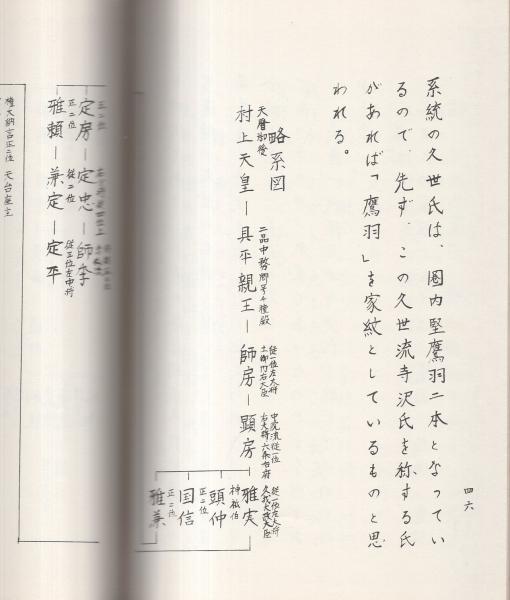 系統の久世氏は、圏内堅鷹羽二本となってい
るので、先ず、この久世流寺沢氏を称する氏
があれば「鷹羽」を家紋としているものと思
われる。
四六
略系図
天暦御後
村上天皇
二品中務卿号千種殿
具平親王
従一位左大将
土御門右大臣
師房
中院流従一位
右大将六条右府
顕房
従一位左大将
久我太政大臣
雅実
神祇伯
顕仲
正二位
国信
正二位
雅兼
正二位
定房
従二位
定忠
師季
正二位
雅頼
従二位
兼定
従三位左中将
定平
権大納言正二位 天台座主